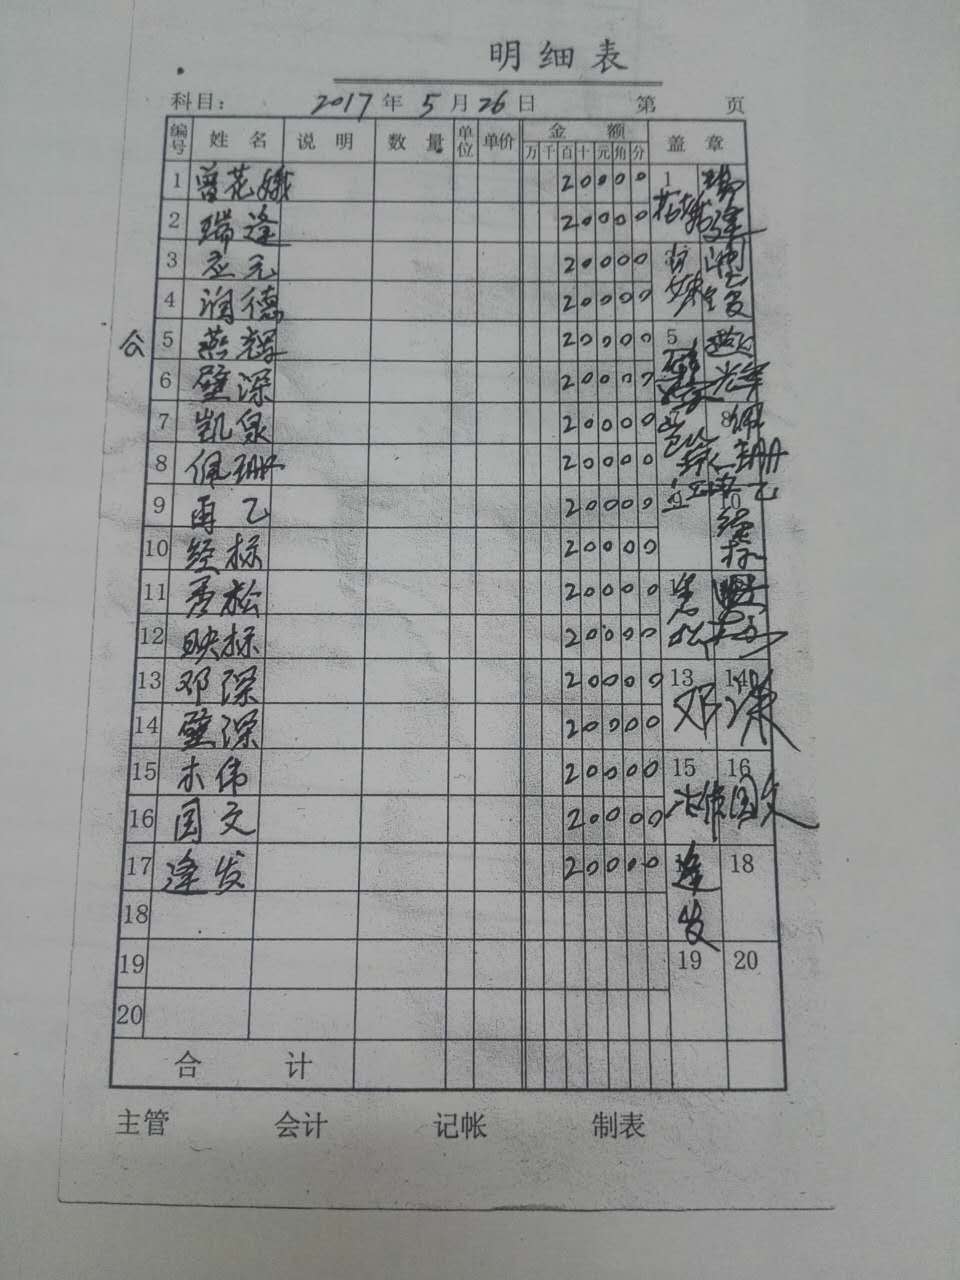 明细表
科目： 2017年5月26日 第 页
编号 姓名 说明 数量 单位 单价 金额 盖章
万 千 百 十 元 角 分
1 曾花娥 20000 1
2 瑞逢 20000
3 应元 20000
4 润德 20000
5 燕辉 20000 5
6 壁深 20000
7 凯泉 20000 8
8 佩珊 20000 佩珊
9 再乙 20000 10
10 经标 20000 经标
11 秀松 20000
12 映标 20000
13 邓深 20000 13 14
14 壁深 20000 邓深
15 木伟 20000 15 16
16 国文 20000 木伟 国文
17 逢发 20000 逢发 18
18
19 19 20
20
合计
主管 会计 记帐 制表